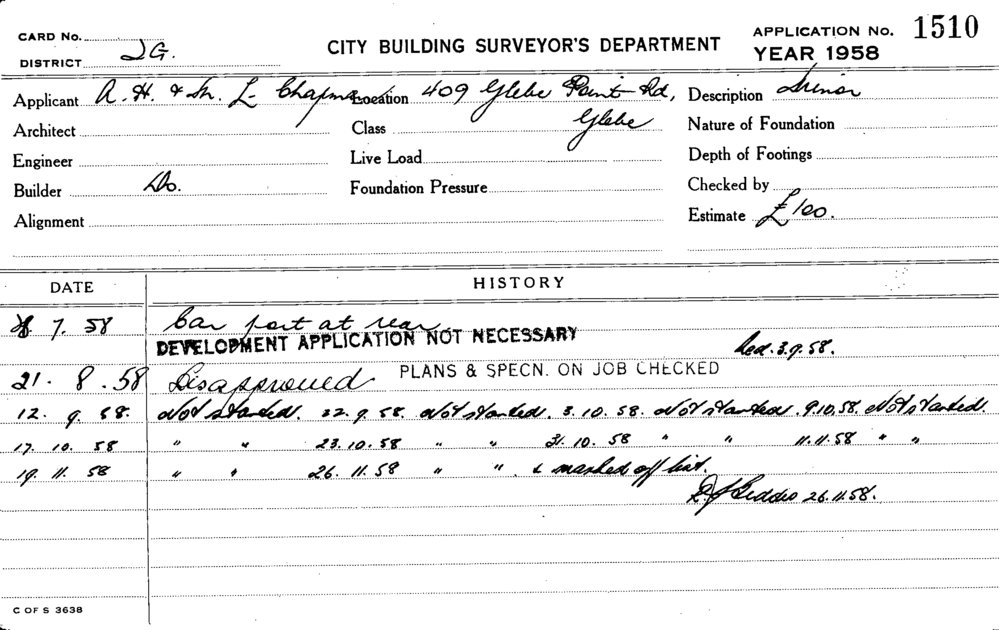 CARD No.
DISTRICT JG.
CITY BUILDING SURVEYOR'S DEPARTMENT
APPLICATION No. 1510
YEAR 1958
Applicant A. H. & M. L. Chapman Location 409 Glebe Point Rd, Description Minor
Architect Class Glebe Nature of Foundation
Engineer Live Load Depth of Footings
Builder Do. Foundation Pressure Checked by
Alignment Estimate £100.
DATE HISTORY
7. 58 Car port at rear
DEVELOPMENT APPLICATION NOT NECESSARY Red. 3.9.58.
21. 8. 58 Disapproved PLANS & SPECN. ON JOB CHECKED
12. 9. 58. Not started. 22. 9. 58. Not started. 3. 10. 58. Not started. 9.10.58. Not started.
17. 10. 58 " " 23. 10. 58 " " 31. 10. 58 " " 11.11.58 " "
19. 11. 58 " " 26. 11. 58 " " & marked off list.
26.11.58.
C OF S 3638